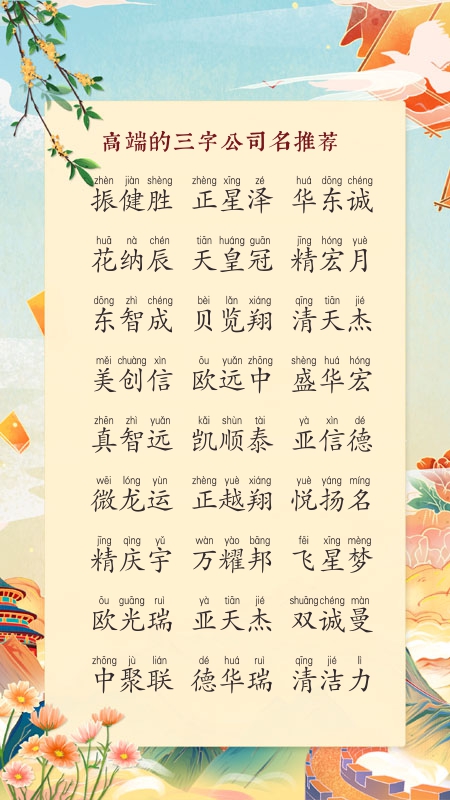 高端的三字公司名推荐
zhèn jiàn shèng zhèng xīng zé huá dōng chéng
振健胜 正星泽 华东诚
huā nà chén tiān huáng guān jīng hóng yuè
花纳辰 天皇冠 精宏月
dōng zhì chéng bèi lǎn xiáng qīng tiān jié
东智成 贝览翔 清天杰
měi chuàng xìn ōu yuǎn zhōng shèng huá hóng
美创信 欧远中 盛华宏
zhēn zhì yuǎn kǎi shùn tài yà xìn dé
真智远 凯顺泰 亚信德
wēi lóng yùn zhèng yuè xiáng yuè yáng míng
微龙运 正越翔 悦扬名
jīng qìng yǔ wàn yào bāng fēi xīng mèng
精庆宇 万耀邦 飞星梦
ōu guāng ruì yà tiān jié shuāng chéng màn
欧光瑞 亚天杰 双诚曼
zhōng jù lián dé huá ruì qīng jié lì
中聚联 德华瑞 清洁力